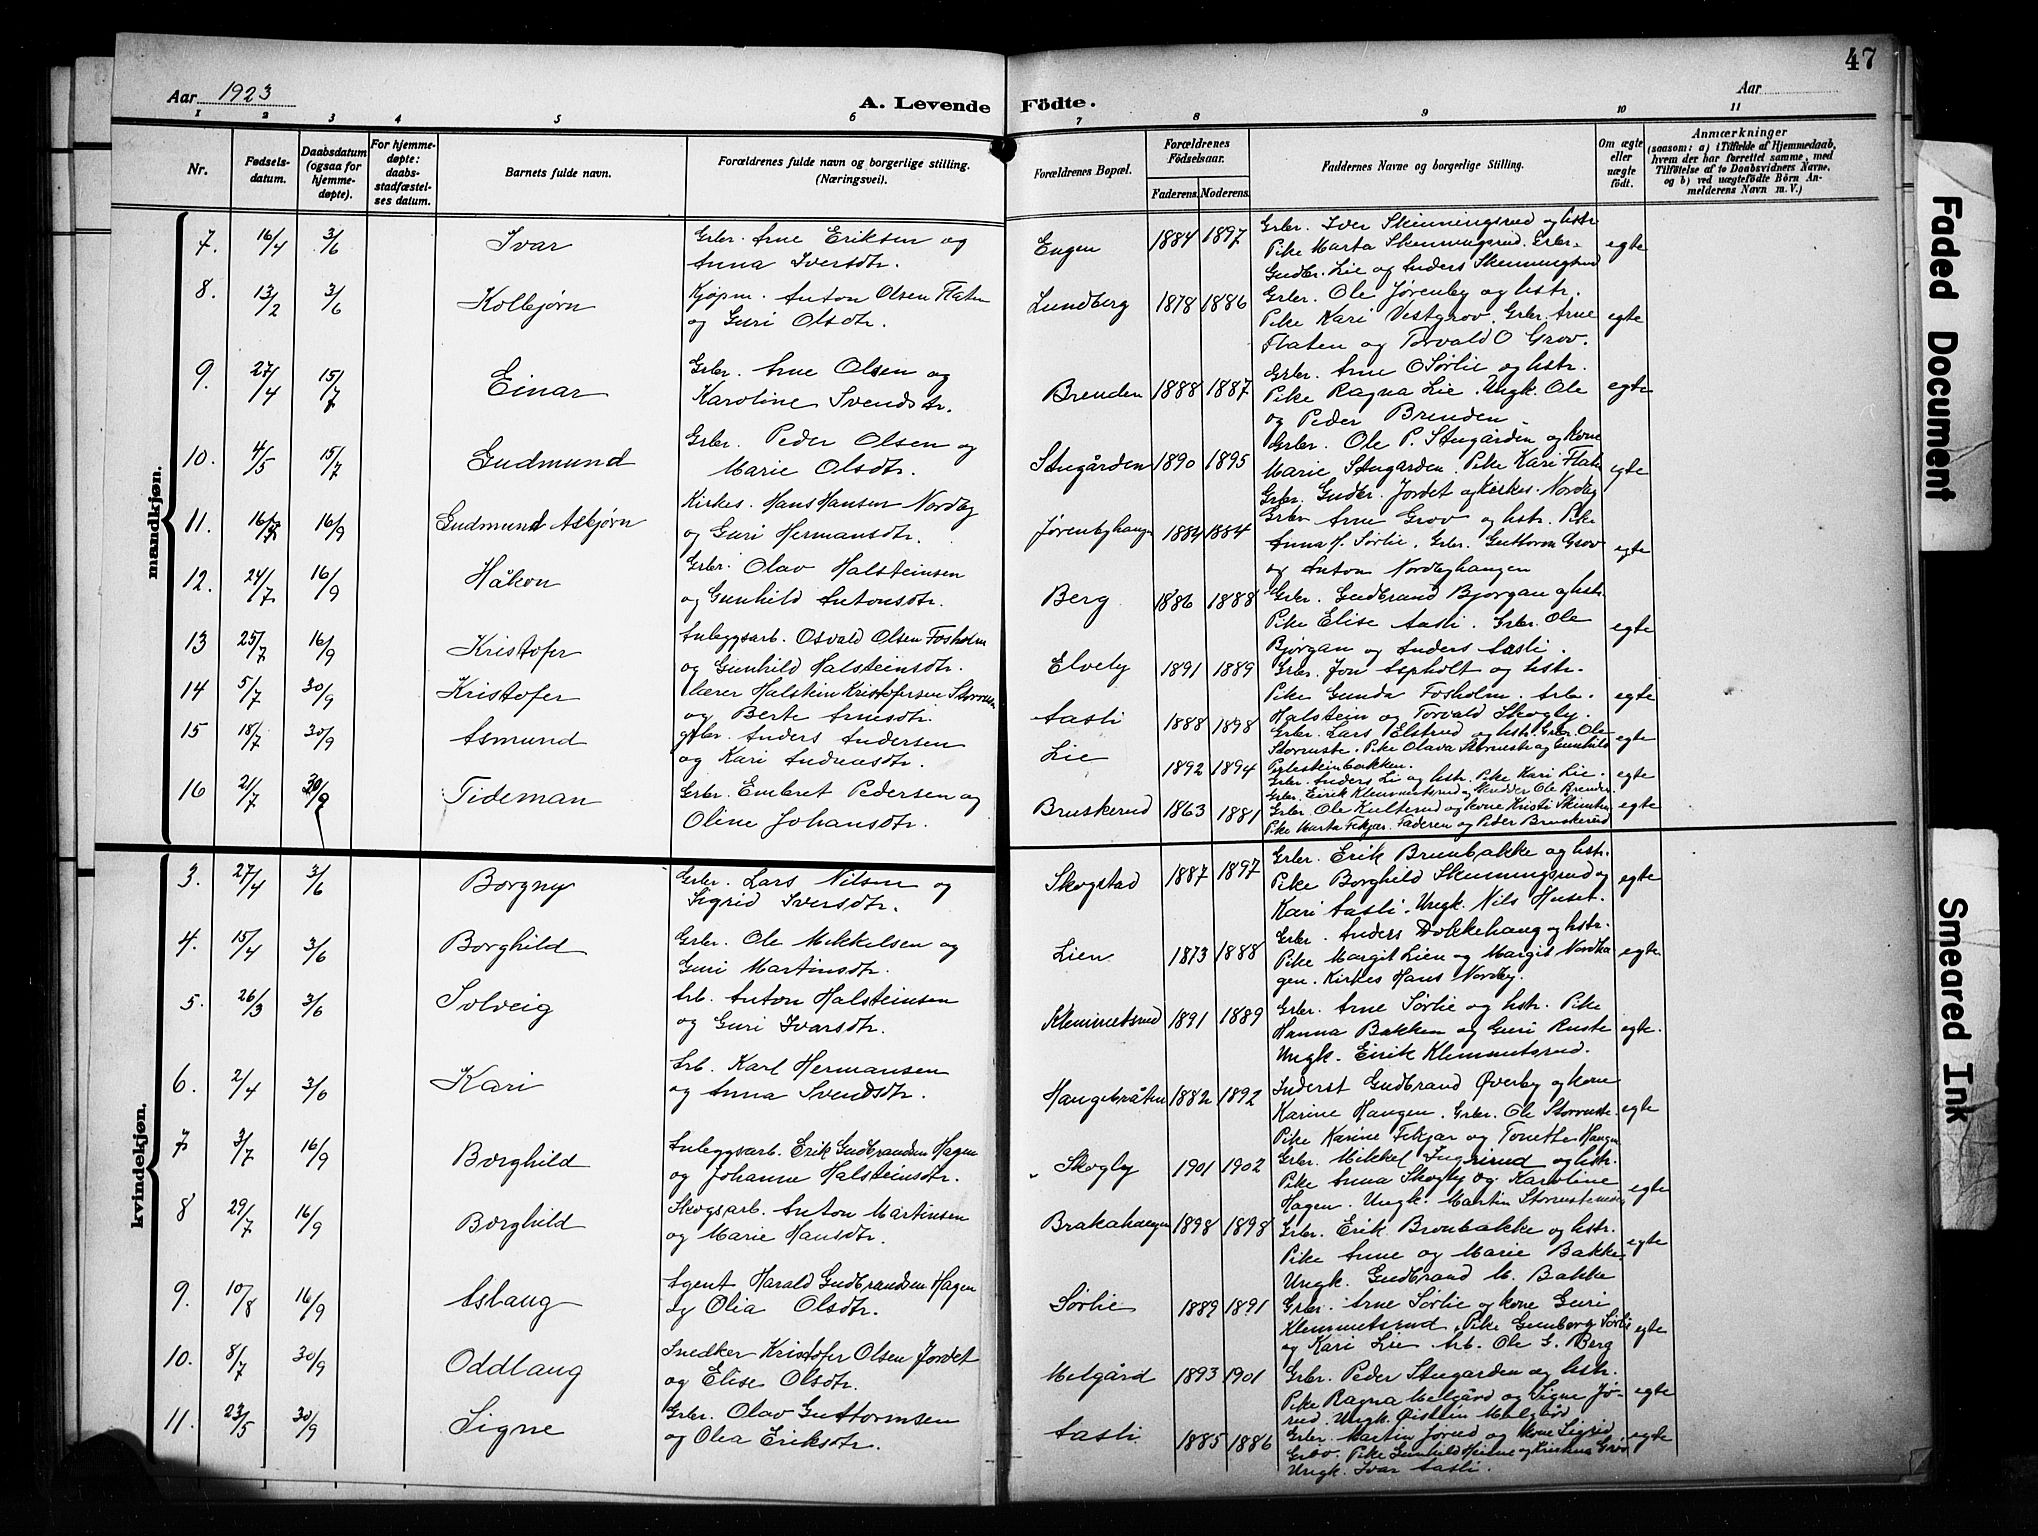 47
Aar 1923
A. Levende Födte.
Aar
1 2 3 4 5 6 7 8 9 10 11
Nr.
Fødsels-
datum.
Daabsdatum
(ogsaa for
hjemme-
døpte).
For hjemme-
døpte:
daabs-
stadfæstel-
ses datum.
Barnets fulde navn.
Forældrenes fulde navn og borgerlige stilling.
(Næringsvei).
Forældrenes Bopæl.
Forældrenes
Födselsaar.
Faderens. Moderens.
Faddernes Navne og borgerlige Stilling.
Om ægte
eller
uægte
födt.
Anmærkninger
(saasom: a) i Tilfælde af Hjemmedaab,
hvem der har forrettet samme, med
Tilföielse af to Daabsvidners Navne,
og b) ved uægtefödte Börn An-
melderens Navn m. V.)
mandkjøn.
7. 16/4 3/6 Ivar Grbr. Arne Eriksen og
Anna Iversdtr.
Engen 1884 1897 Grbr. Iver Skinningsrud og hstr.
Pike Marta Skinningsrud. Grbr.
Gudbr. Lie og Anders Skinningsrud
egte
8. 13/2 3/6 Kolbjørn Kjøpm. Anton Olsen Flaten
og Guri Olsdtr.
Lundberg 1878 1886 Grbr. Ole Jørenby og hstr.
Pike Kari Vestgrov, Grbr. Arne
Flaten og Torvald O Grov.
egte
9. 27/4 15/7 Einar Grbr. Arne Olsen og
Karoline Svendsdtr.
Brenden 1888 1887 Grbr. Arne O Sørlie og hstr.
Pike Ragna Lie. Ungk. Ole
og Peder Brenden.
egte
10. 4/5 15/7 Gudmund Grbr. Peder Olsen og
Marie Olsdtr.
Stugården 1890 1895 Grbr. Ole P. Stugården og kone
Marie Stugården. Pike Kari Flaten
Grbr. Gudbr. Jordet og Kirkes. Nordby
egte
11. 16/9 Gudmund Asbjørn Kirkes. Hans Hansen Nordby
og Guri Hermansdtr.
Jørenbyhaugen 1884 1884 Grbr Arne Grov og hstr. Pike
Anna H. Sørlie. Grbr. Guttorm Grov
og Anton Nordbyhaugen
egte
12. 24/7 16/9 Håkon Grbr. Olav Halsteinsen
og Gunhild Antonsdtr.
Berg 1886 1888 Grbr. Gudbrand Bjørgan og hstr.
Pike Elise Aasli. Grbr. Ole
Bjørgan og Anders Aasli.
egte
13 25/7 16/9 Kristofer Anleggsarb. Osvald Olsen Fosholm
og Gunhild Halsteinsdtr.
Elvely 1891 1889 Grbr. Jon Aspholt og hstr.
Pike Gunda Fosholm. Arb.
Halstein og Torvald Skogly.
egte
14 5/7 30/9 Kristofer Lærer Halstein Kristofersen Storruste
og Berte Arnesdtr.
Aasli 1888 1898 Grbr. Lars Elstrud og hstr. Grbr. Ole
Storruste. Pike Olava Storruste og Gunhild
Perlesteinbakken.
egte
15 18/7 30/9 Asmund Grbr. Anders Andersen
og Kari Andreasdtr.
Lie 1892 1894 Grbr. Anders Li og hstr. Pike Kari Lie.
Grbr. Eirik Klemmetsrud og Ole Brenden.
egte
16 21/7 30/9 Tideman Grbr. Embret Pedersen og
Oline Johansdtr.
Bruskerud 1863 1881 Grbr. Ole Kulterud og kone Kristi
Pike Marta Fekjær. Faderen og Peder Bruskerud
egte
kvindekjøn.
3. 27/4 3/6 Borgny Grbr. Lars Nilsen og
Sigrid Iversdtr.
Skogstad 1887 1897 Grbr. Erik Brunbakke og hstr.
Pike Borghild Skinningsrud og
Kari Aasli. Ungk. Nils Huset.
egte
4. 15/4 3/6 Borghild Grbr. Ole Mikkelsen og
Guri Martinsdtr.
Lien 1873 1888 Grbr. Anders Dokkehaug og hstr.
Pike Margit Lien og Margit Nordha
gen. Kirkes Hans Nordby.
egte
5. 26/3 3/6 Solveig Arb. Anton Halsteinsen
og Guri Ivarsdtr.
Klemmetsrud 1891 1889 Grbr. Arne Sørlie og hstr. Pike
Hanna Bakken og Guri Ruste
Ungk. Eirik Klemmetsrud.
egte.
6. 2/4 3/6 Kari Arb. Karl Hermansen
og Anna Svendsdtr.
Haugebråten 1882 1892 Inderst Gudbrand Øverby og kone
Karine Haugen. Grbr. Ole Storruste
Pike Karine Fekjær og Tonette Haugen
egte
7 3/7 16/9 Borghild Anleggsarb. Erik Gudbrandsen Hagen
og Johanne Halsteinsdtr.
Skogly 1901 1902 Grbr. Mikkel Ingrirud og hstr.
Pike Anna Skogly og Karoline
Hagen. Ungk. Martin
egte
8 29/7 16/9 Borghild Skogsarb. Anton Martinsen
og Marie Hansdtr.
Brakahaugen 1898 1898 Grbr. Erik Bronbakke og hstr.
Pike Anne og Marie Bakke
Ungk. Gudbrand M. Bakke
egte
9. 10/8 16/9 Aslaug Agent Harald Gudbrandsen Hagen
og Olia Olsdtr.
Sørlie 1889 1891 Grbr. Arne Sørlie og kone Guri
Klemmetsrud. Pike Gunborg Sørlie
og Kari Lie Arb. Ole G. Berg
egte
10. 8/7 30/9 Oddlaug Snedker Kristofer Olsen Jordet
og Elise Olsdtr.
Melgård 1893 1901 Grbr. Peder Stugarden og hstr.
Pike Ragna Melgård og Signe Jø-
rud. Ungk. Øistein Melgård
egte
11. 23/5 30/9 Signe Grbr. Olav Guttormsen
og Olea Eriksdtr.
Aasli 1885 1886 Grbr. Martin Jørud og kone Sigrid
Pike Gunhild og Kristina Grov
Ungk. Ivar Aasli.
egte
Faded Document
Smeared Ink